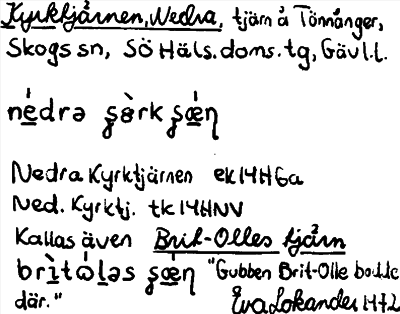 Kyrktjärnen, Nedra, tjärn å Tönnånger,
Skogs sn, Sö Häls. doms. tg, Gävl. l.
nédrə ʂàrkʂǽɳ
Nedra Kyrktjärnen ek 14H6a
Ned. Kyrktj. tk 14HNV
Kallas även Brit-Olles tjärn
brìtòləs ʂǽɳ "Gubben Brit-Olle bodde
där." Eva Lokander 1972